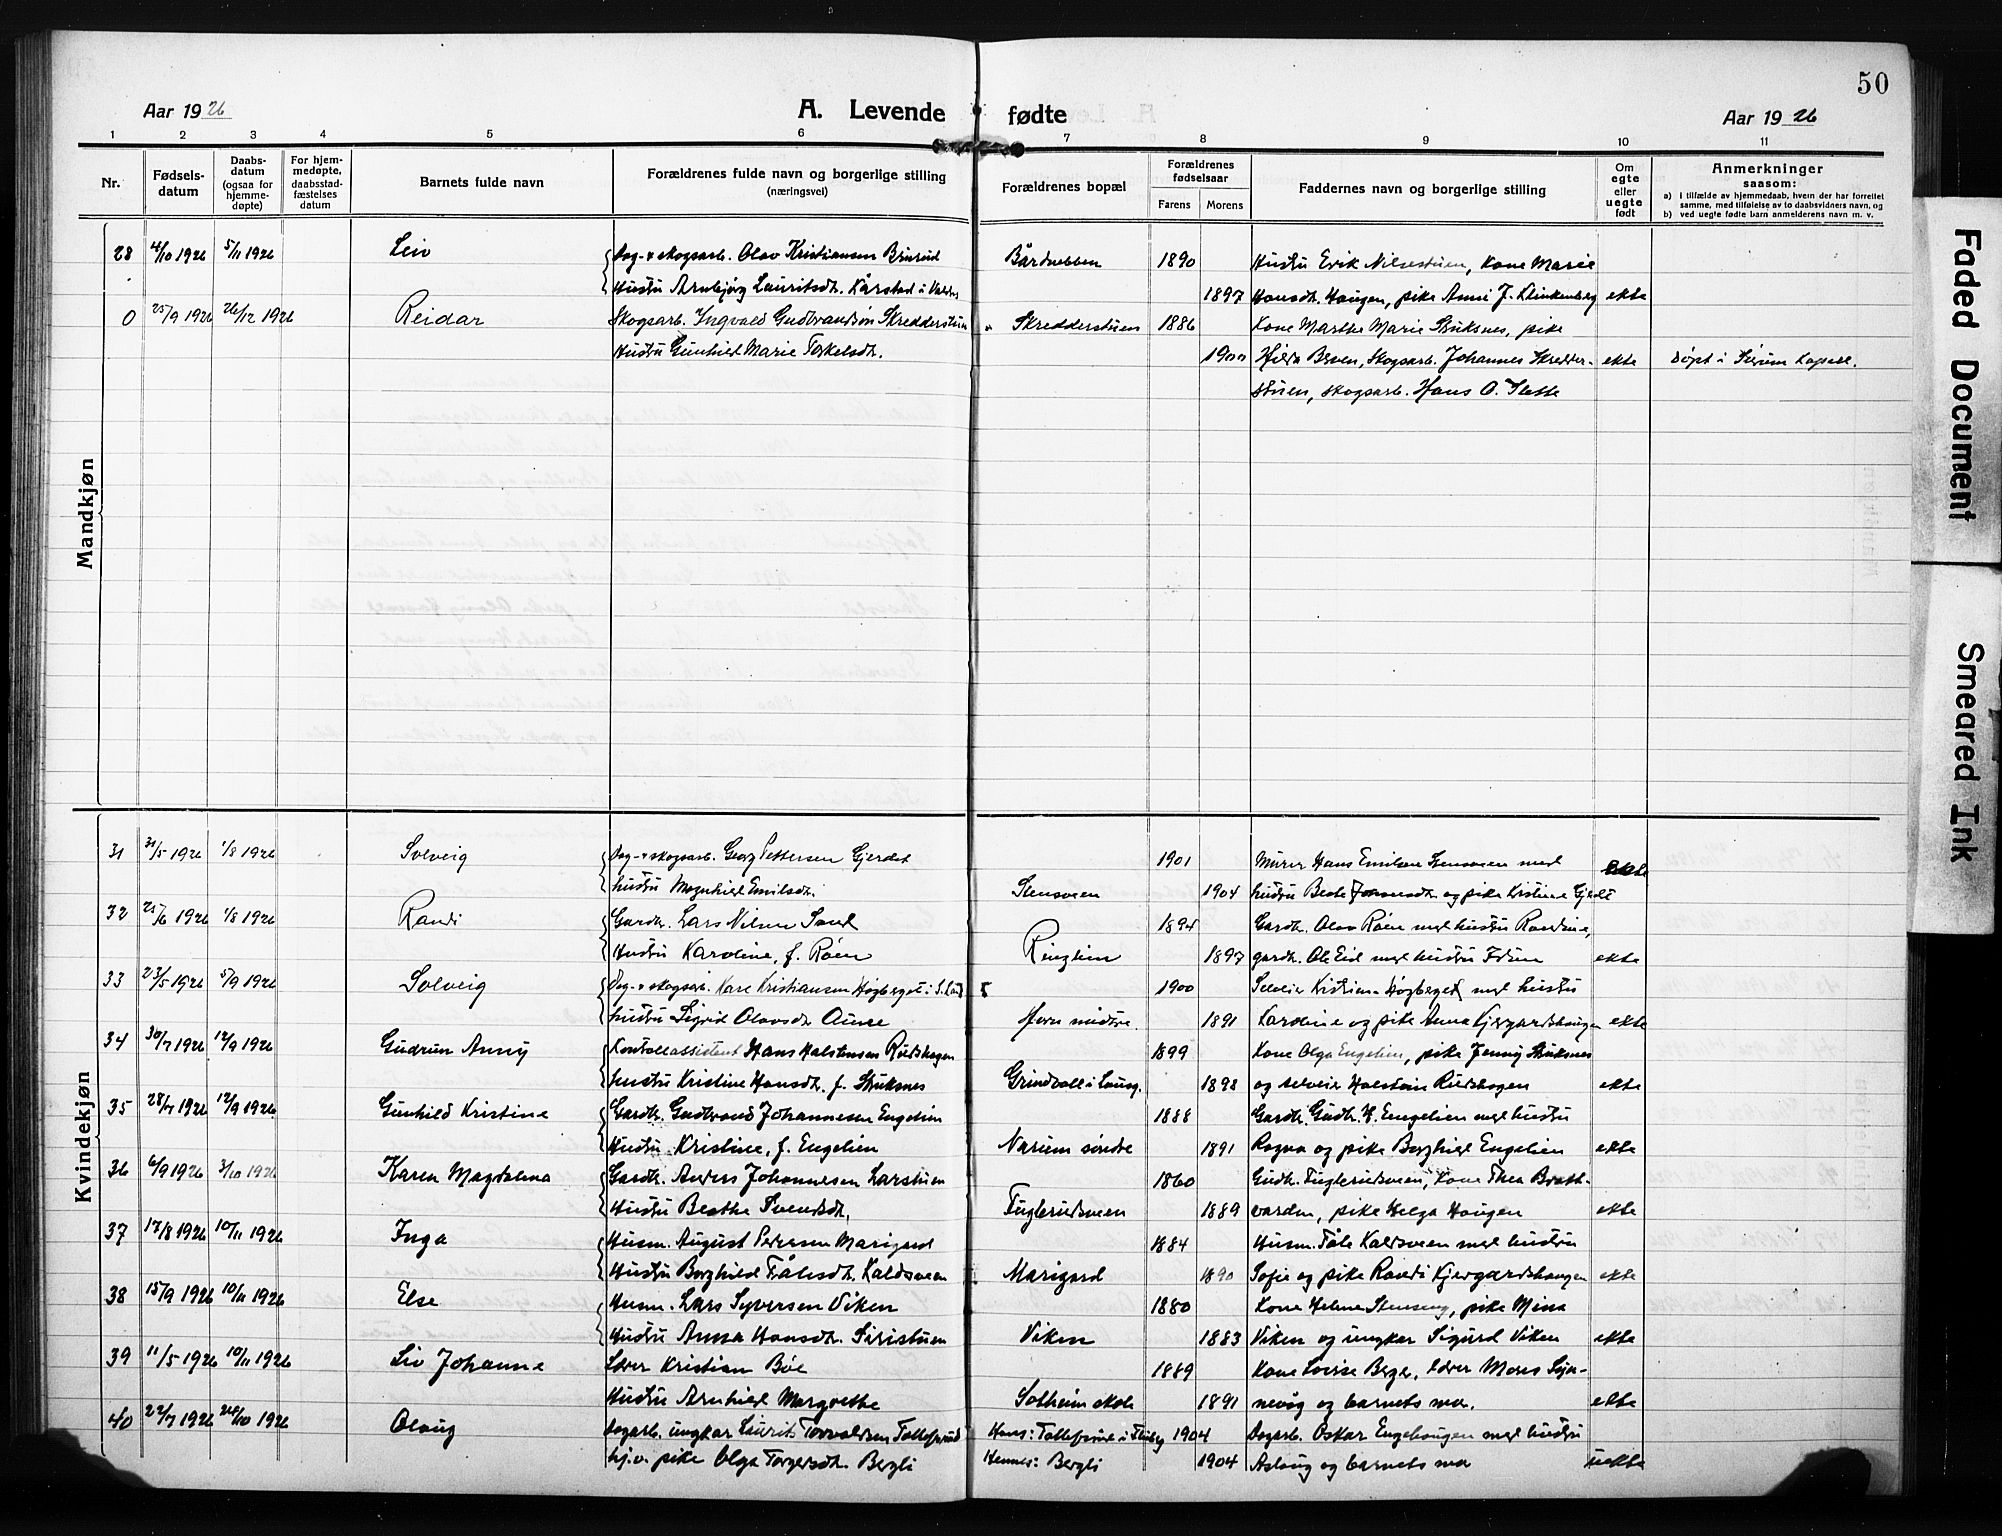 50
Aar 1926
A. Levende fødte
Aar 1926
1 2 3 4 5 6 7 8 9 10 11
Nr.
Fødsels-
datum
Daabs-
datum
(ogsaa for
hjemme-
døpte)
For hjem-
medøpte,
daabsstad-
fæstelses
datum
Barnets fulde navn
Forældrenes fulde navn og borgerlige stilling
(næringsvei)
Forældrenes bopæl
Forældrenes
fødselsaar
Farens Morens
Faddernes navn og borgerlige stilling
Om
egte
eller
uegte
født
Anmerkninger
saasom:
a) I tilfælde av hjemmedaab, hvem der har forrettet
samme, med tilføielse av to daabsvidners navn, og
b) ved uegte fødte barn anmelderens navn m. v.
Mandkjøn
28 4/10 1926 5/11 1926 Leiv Dag- & skogsarb. Olav Kristiansen 1890 Hustru Erik Nilsestuen, Kone Marie
Hustru Arnbjørg Lauritsdtr. Kårstad i Valdres 1897 Hansdtr. Haugen, pike Anni J. Klinkenberg ekte
0 25/9 1926 26/12 1926 Reidar Skogsarb. Ingvald Gudbrandsøn Skredderstuen Skredderstuen 1886 Kone Marthe Marie Struksnes, pike
Hustru Gunhild Marie Torkelsdtr. 1900 Hilda Breen, Skogsarb. Johannes Skredder- ekte døpt i Skrum kapell.
stuen, skogsarb. Hans O. Slette
Kvindekjøn
31 31/5 1926 1/8 1926 Solveig Dag- & skogsarb. Georg Pettersen Gjerdet 1901 Murer Hans Emilsen Stensveen med ekte
hustru Magnhild Emilsdtr. Stensveen 1904 hustru Beate Johansdtr og pike Kristine Gjerdet
32 25/6 1926 1/8 1926 Randi Gardbr. Lars Nilsen Sand 1894 Gardbr. Olav Røen med hustru Randine,
Hustru Karoline, f. Røen Ringlien 1897 gardbr. Ole Eid med hustru ekte
33 23/5 1926 5/9 1926 Solveig Dag- & skogsarb. Kåre Kristiansen Høgberget i S. Land 1900 Selveier Kristian Høgberget med hustru
hustru Sigrid Olavsdtr Aunse Horn midtre. 1891 Karoline og pike Anna Kjergardshaugen ekte
34 30/7 1926 12/9 1926 Gudrun Anny Kontrollassistent Hans Halstensen Rudshagen 1899 Kone Olga Engelien, pike Jenny Struksnes
hustru Kristine Hansdtr. f. Struksnes Grindvoll i Lunner. 1898 og selveier Halstein Rudshagen ekte
35 28/7 1926 12/9 1926 Gunhild Kristine Gardbr. Gudbrand Johannesen Engelien 1888 Gardbr. Gudbr. H. Engelien med hustru
Hustru Kristine, f. Engelien Narum søndre 1891 Ragna og pike Borghild Engelien ekte
36 6/9 1926 3/10 1926 Karen Magdalena Gardbr. Anders Johannesen Larstuen 1860 Gudbr. Fuglerudsveen, Kone Thea Bratt-
Hustru Beathe Svendsdtr. Fuglerudsveen 1889 varden, pike Helga Haugen ekte
37 17/8 1926 10/11 1926 Inga Husm. August Pedersen Marigard 1884 Husm. Tåle Kaldsveen med hustru
Hustru Borghild Tålesdtr. Kaldsveen Marigard 1890 Sofie og pike Randi Kjergardshaugen ekte
38 15/9 1926 10/11 1926 Else Husm. Lars Syversen Viken 1880 Kone Helene Stenseng, pike Mina
Hustru Anna Hansdtr. Siristuen Viken 1883 Viken og ungkar Sigurd Viken ekte
39 11/5 1926 10/11 1926 Liv Johanne Lærer Kristian Bøe 1889 Kone Lovise Berge, lærer Mons Syn-
Hustru Arnhild Margrethe Solheim skole 1891 nevåg og barnets mor. ekte
40 22/7 1926 24/10 1926 Olaug Dagarb. ungkar Laurits Torvaldsen Tollefsrud Hans: Tollefsrud i Fluberg 1904 Dagarb. Oskar Engehaugen med hustru
hj.v. pike Olga Torgersdtr. Bergli Hennes: Bergli 1904 Aslaug og barnets mor uekte
Faded Document
Smeared Ink